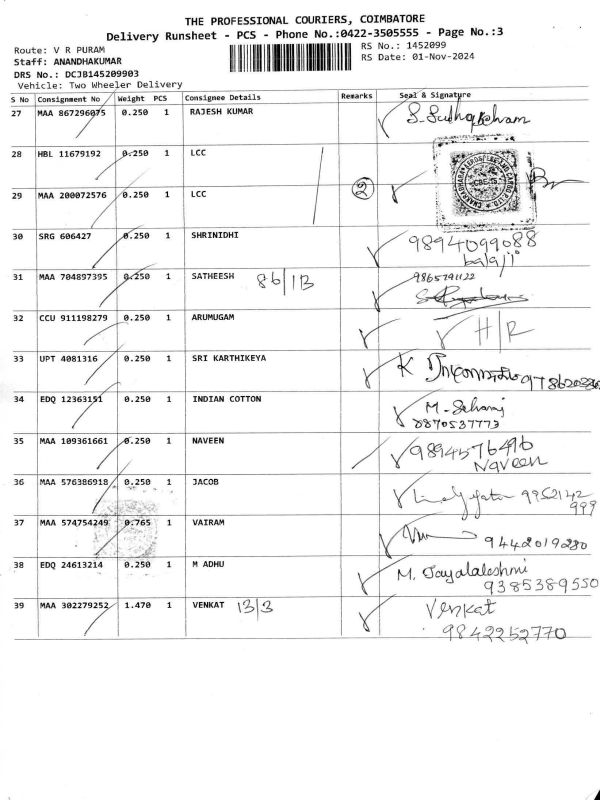 THE PROFESSIONAL COURIERS, COIMBATORE
Delivery Runsheet - PCS - Phone No.:0422-3505555 - Page No.:3
Route: V R PURAM
RS No.: 1452099
Staff: ANANDHAKUMAR
RS Date: 01-Nov-2024
DRS No.: DCJB145209903
Vehicle: Two Wheeler Delivery
S No Consignment No Weight PCS Consignee Details Remarks Seal & Signature
27 MAA 867296075 0.250 1 RAJESH KUMAR
28 HBL 11679192 0.250 1 LCC
29 MAA 200072576 0.250 1 LCC 2
30 SRG 606427 0.250 1 SHRINIDHI 9894099088
balaji
31 MAA 704897395 0.250 1 SATHEESH 86/1B 9865791122
32 CCU 911198279 0.250 1 ARUMUGAM H/R
33 UPT 4081316 0.250 1 SRI KARTHIKEYA K
34 EDQ 12363151 0.250 1 INDIAN COTTON M.
8870537773
35 MAA 109361661 0.250 1 NAVEEN 9894576496
Naveen
36 MAA 576386918 0.250 1 JACOB 9952142
999
37 MAA 574754249 0.765 1 VAIRAM 9442019280
38 EDQ 24613214 0.250 1 M ADHU M. Jayalaleshmi
9385389550
39 MAA 302279252 1.470 1 VENKAT 13/3 Venkat
9842252770